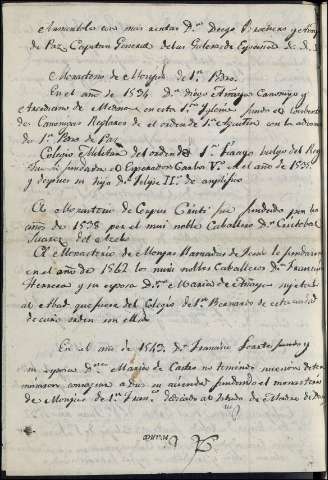 Aumentolo con mas rentas D.n Diego Brochero y Anaya
de Paz Capitan General de las Galeras de España &.
Monasterio de Monjas de S.n Pedro.
En el año de 1534 D.n Diego Anaya Canonigo y
Arcediano de Medina en esta S.ta Iglesia fundo el Convento
de Canonigas Reglares de el orden de S.n Agustin con la advocacion
de S.n Pedro de la Paz
Colegio Militar del orden de S.n tiago, vulgo del Rey
Fue su fundador el Emperador Carlos V.o en el año de 1535
y despues su hijo D.n Felipe II.o le amplifico
El Monasterio de Corpus Cristi fue fundado por los
años de 1538 por el mui noble Caballero D.n Cristobal
Suarez del
El Monasterio de Monjas Bernardas de Jesus le fundaron
en el año de 1542 los mui nobles Caballeros D.n Francisco
Herrera y su esposa D.na Maria de Anaya, sujeto al
al Abad que fuera del Colegio de S.n Bernardo de esta ciudad
de cuio orden son
En el año de 1543 D.n Francisco y
su esposa D.na Maria de Castro no teniendo sucesion deter
minaron consagrar a Dios su hacienda fundando el monasterio
de Monjas de S.n Fran.co dedicado al de Madre de Dios